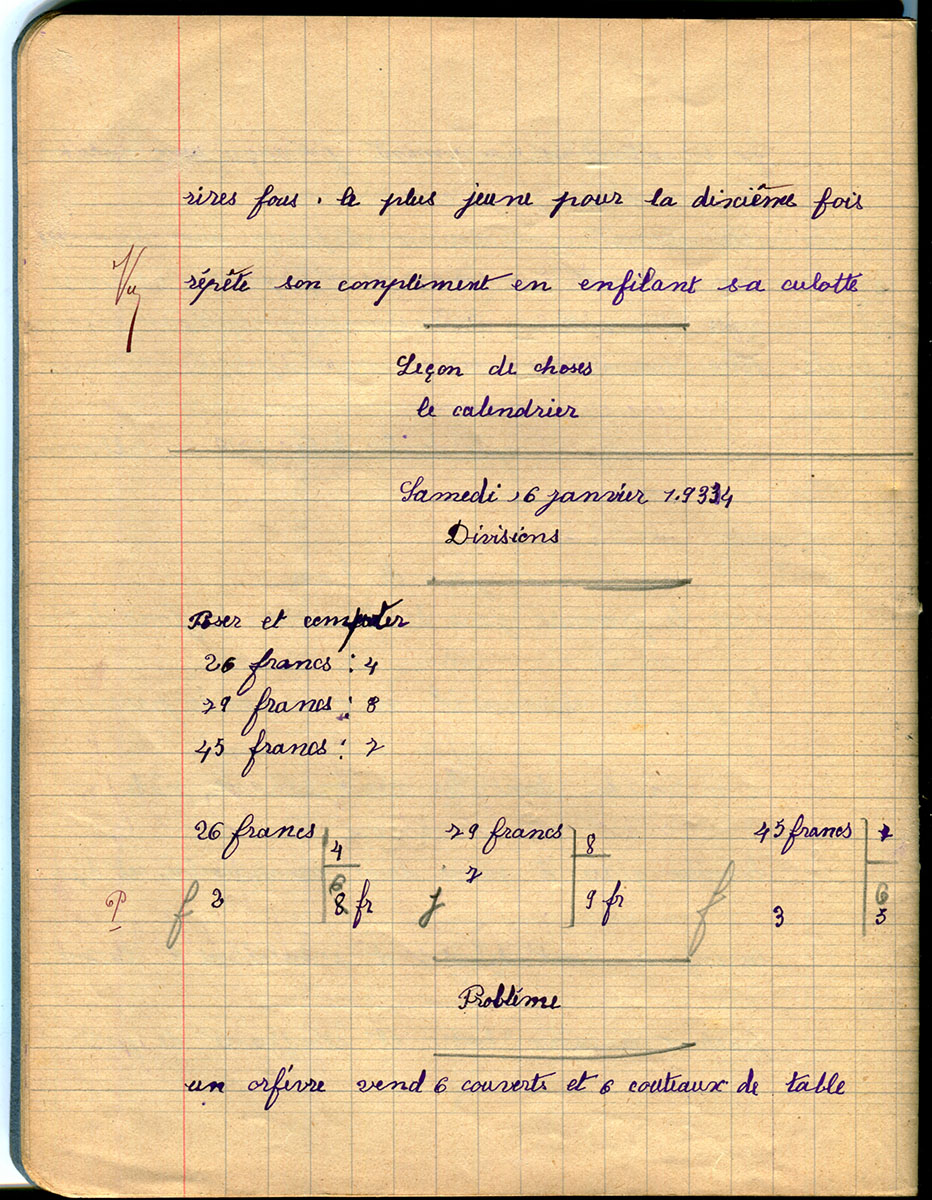 rires fous. le plus jeune pour la dixiême fois
Vu
répête son compliment en enfilant sa culotte
Leçon de choses
le calendrier
Samedi, 6 janvier 1.934
Divisions
Poser et compter
26 francs : 4
79 francs : 8
45 francs : 7
26 francs 4 79 francs 8 45 francs 7
7
f 2 6 8 fr 9 fr f 3 6 5
Problême
un orfévre vend 6 couverts et 6 couteaux de table